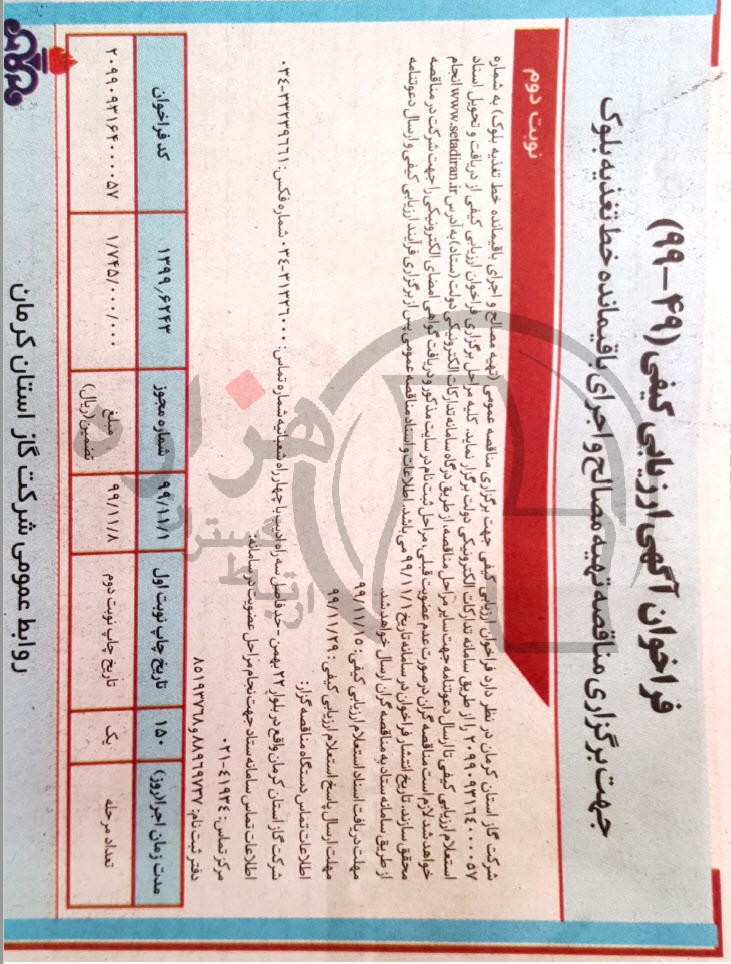 فراخوان آگهی ارزیابی کیفی (۴۹-۹۹)
جهت برگزاری مناقصه تهیه مصالح و اجرای باقیمانده خط تغذیه بلوک
نوبت دوم
شرکت گاز استان کرمان در نظر دارد فراخوان ارزیابی کیفی جهت برگزاری مناقصه عمومی (تهیه مصالح و اجرای باقیمانده خط تغذیه بلوک) به شماره
۲۰۹۹۰۹۳۱۶۴۰۰۰۰۵۷ را از طریق سامانه تدارکات الکترونیکی دولت برگزار نماید. کلیه مراحل برگزاری فراخوان ارزیابی کیفی از دریافت و تحویل اسناد
استعلام ارزیابی کیفی تا ارسال دعوتنامه جهت سایر مراحل مناقصه، از طریق درگاه سامانه تدارکات الکترونیکی دولت (ستاد) به آدرس www.setadiran.ir انجام
خواهد شد لازم است مناقصه گران درصورت عدم عضویت قبلی، مراحل ثبت نام در سایت مذکور و دریافت گواهی امضای الکترونیکی را جهت شرکت در مناقصه
محقق سازند. تاریخ انتشار فراخوان در سامانه تاریخ ۹۹/۱۱/۱ می باشد. اطلاعات و اسناد مناقصه عمومی پس از برگزاری فرآیند ارزیابی کیفی و ارسال دعوتنامه
از طریق سامانه ستاد به مناقصه گران ارسال خواهد شد.
مهلت دریافت اسناد استعلام ارزیابی کیفی: ۹۹/۱۱/۱۵
مهلت ارسال پاسخ استعلام ارزیابی کیفی: ۹۹/۱۱/۲۹
اطلاعات تماس دستگاه مناقصه گزار:
شرکت گاز استان کرمان واقع در بلوار ۲۲ بهمن - حد فاصل سه راه ادیب با چهار راه شعبانیه شماره تماس: ۳۱۳۲۶۰۰۰-۰۳۴ شماره فکس: ۳۳۲۳۹۶۶۱-۰۳۴
اطلاعات تماس سامانه ستاد جهت نجام مراحل عضویت در سامانه:
مرکز تماس: ۴۱۹۳۴-۰۲۱
دفتر ثبت نام: ۸۸۹۶۹۷۳۷ و ۸۵۱۹۳۷۶۸
مدت زمان اجرا(روز) ۱۵۰ تاریخ چاپ نوبت اول ۹۹/۱۱/۱ شماره مجوز ۱۳۹۹٫۶۲۴۳ کد فراخوان
تعداد مرحله یک تاریخ چاپ نوبت دوم ۹۹/۱۱/۸ مبلغ تضمین(ریال) ۱/۷۴۵/۰۰۰/۰۰۰ ۲۰۹۹۰۹۳۱۶۴۰۰۰۰۵۷
روابط عمومی شرکت گاز استان کرمان